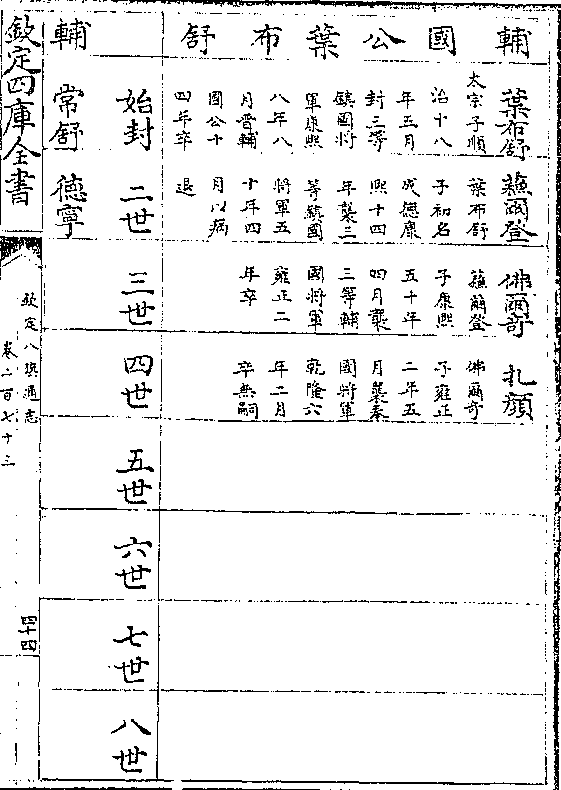 輔國公葉布舒
葉布舒
太宗子順
治十八
年五月
封三等
鎮國將
軍康熙
八年八
月晉輔
國公十
四年卒
蘇爾登
葉布舒
子初名
成德康
熙十四
年襲三
等鎮國
將軍五
十年四
月以病
退
佛爾奇
蘇爾登
子康熙
五十年
四月襲
三等輔
國將軍
雍正二
年卒
扎顏
佛爾奇
子雍正
二年五
月襲奉
國將軍
乾隆六
年二月
卒無嗣
始封
二世
三世
四世
五世
六世
七世
八世
輔
常舒
德寧
欽定四庫全書
欽定八旗通志
卷二百七十三
四十四